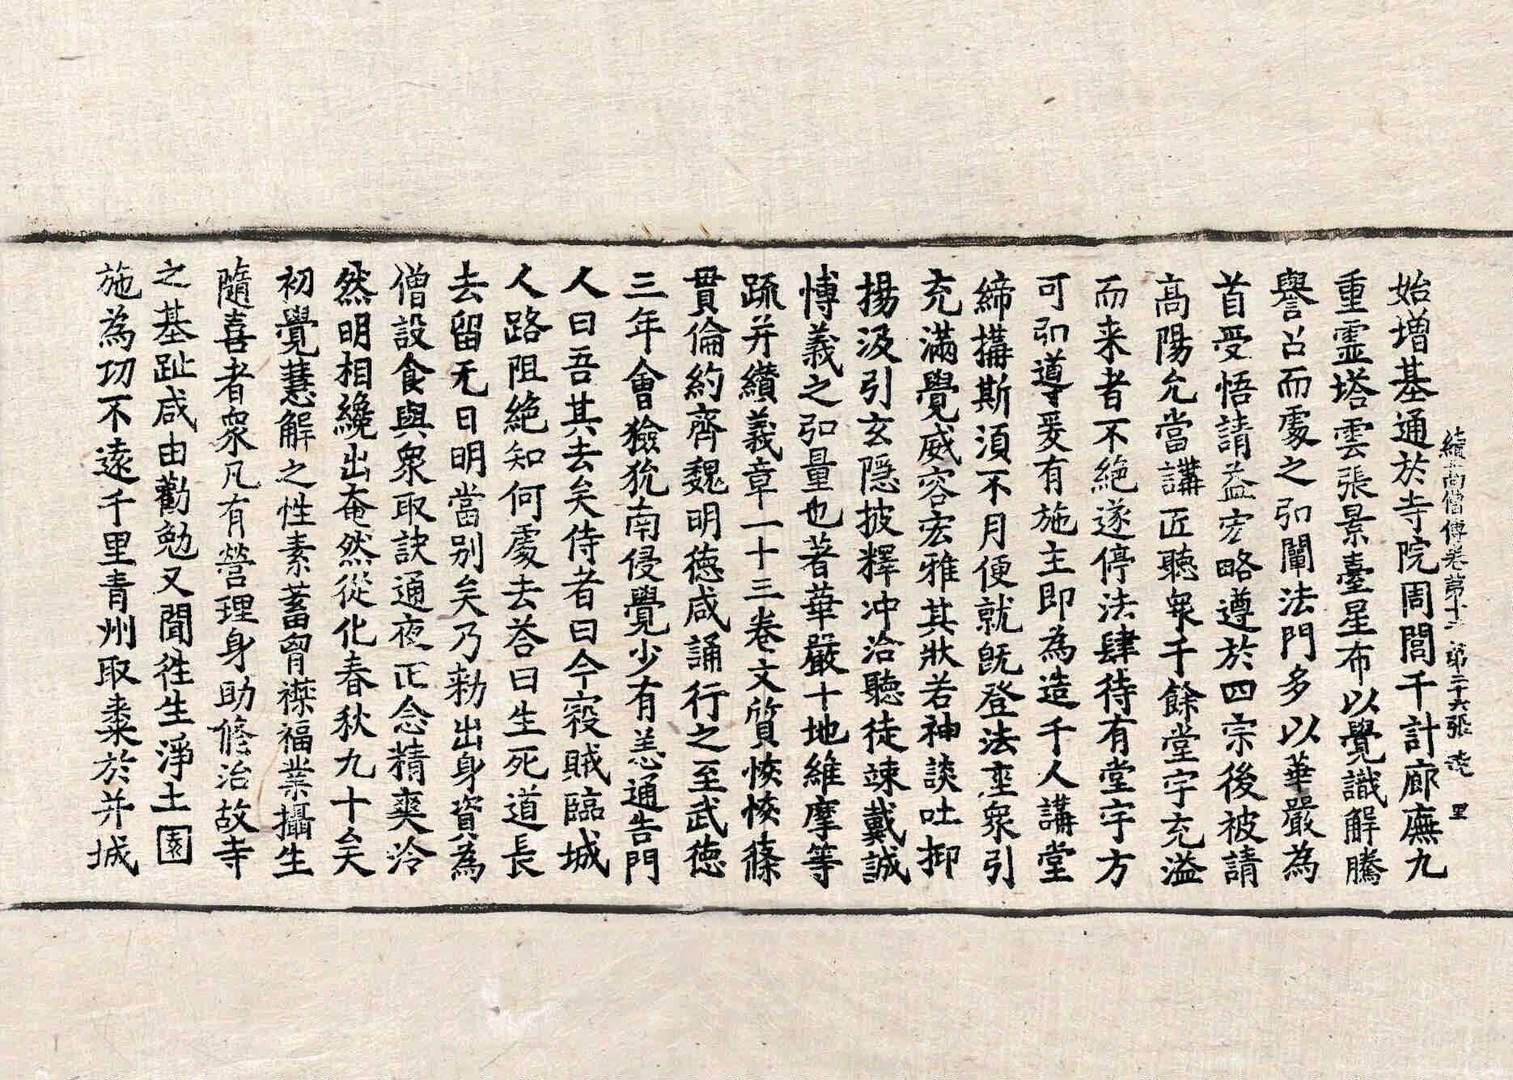 續高僧傳卷第十二 第二十六張 㲉 里
始增基通於寺院周閭千計廊廡九
重靈塔雲張景臺星布以覺識解騰
譽召而處之弘闡法門多以華嚴為
首受悟請益宏略遵於四宗後被請
高陽允當講匠聽衆千餘堂宇充溢
而来者不絶遂停法肆待有堂宇方
可弘導爰有施主即為造千人講堂
締搆斯須不月便就既登法座衆引
充滿覺威容宏雅其狀若神談吐抑
揚汲引玄隠披釋冲洽聽徒竦戴誠
博義之弘量也著華嚴十地維摩等
疏并纘義章一十三卷文質恢恢篠
貫倫約齊魏明德咸誦行之至武德
三年會獫狁南侵覺少有恙通告門
人曰吾其去矣侍者曰今寇賊臨城
人路阻絶知何處去荅曰生死道長
去留无日明當别矣乃勑出身資為
僧設食與衆取訣通夜正念精爽泠
然明相纔出奄然從化春秋九十矣
初覺慧解之性素蓄胷襟福業攝生
隨喜者衆凡有營理身助修治故寺
之基趾咸由勸勉又聞往生淨土園
施為功不遠千里青州取棗於并城